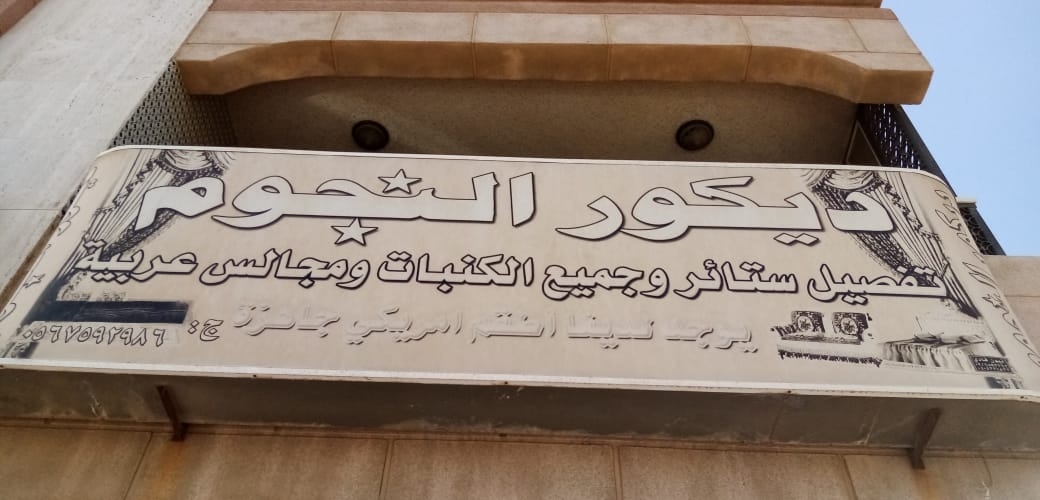 ديكور النجوم
تفصيل ستائر وجميع الكنبات ومجالس عربية
يوجد لدينا امريكي جاهزة
ج: ٠٥٦٧٥٩٢٩٨٦